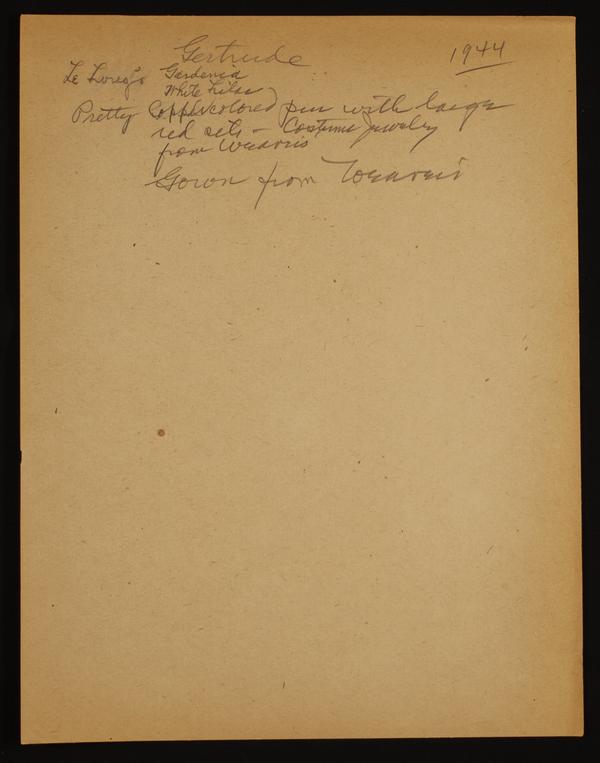 Gertrude 1944
Le Lorez's Gardenia
White Lilac
Pretty Copper colored pin with large
red sets - Costume Jewelry
from Weavers
Gown from Weavers